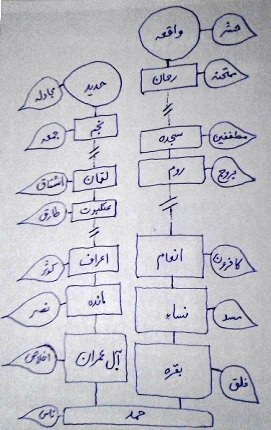 حشر
واقعه
ممتحنه
رحمان
مجادله
حدید
جمعه
نجم
مطففین
سجده
بروج
روم
انشقاق
لقمان
طارق
عنکبوت
کافرون
انعام
کوثر
اعراف
مسد
نساء
نصر
مائده
فلق
بقره
اخلاص
آل عمران
ناس
حمد